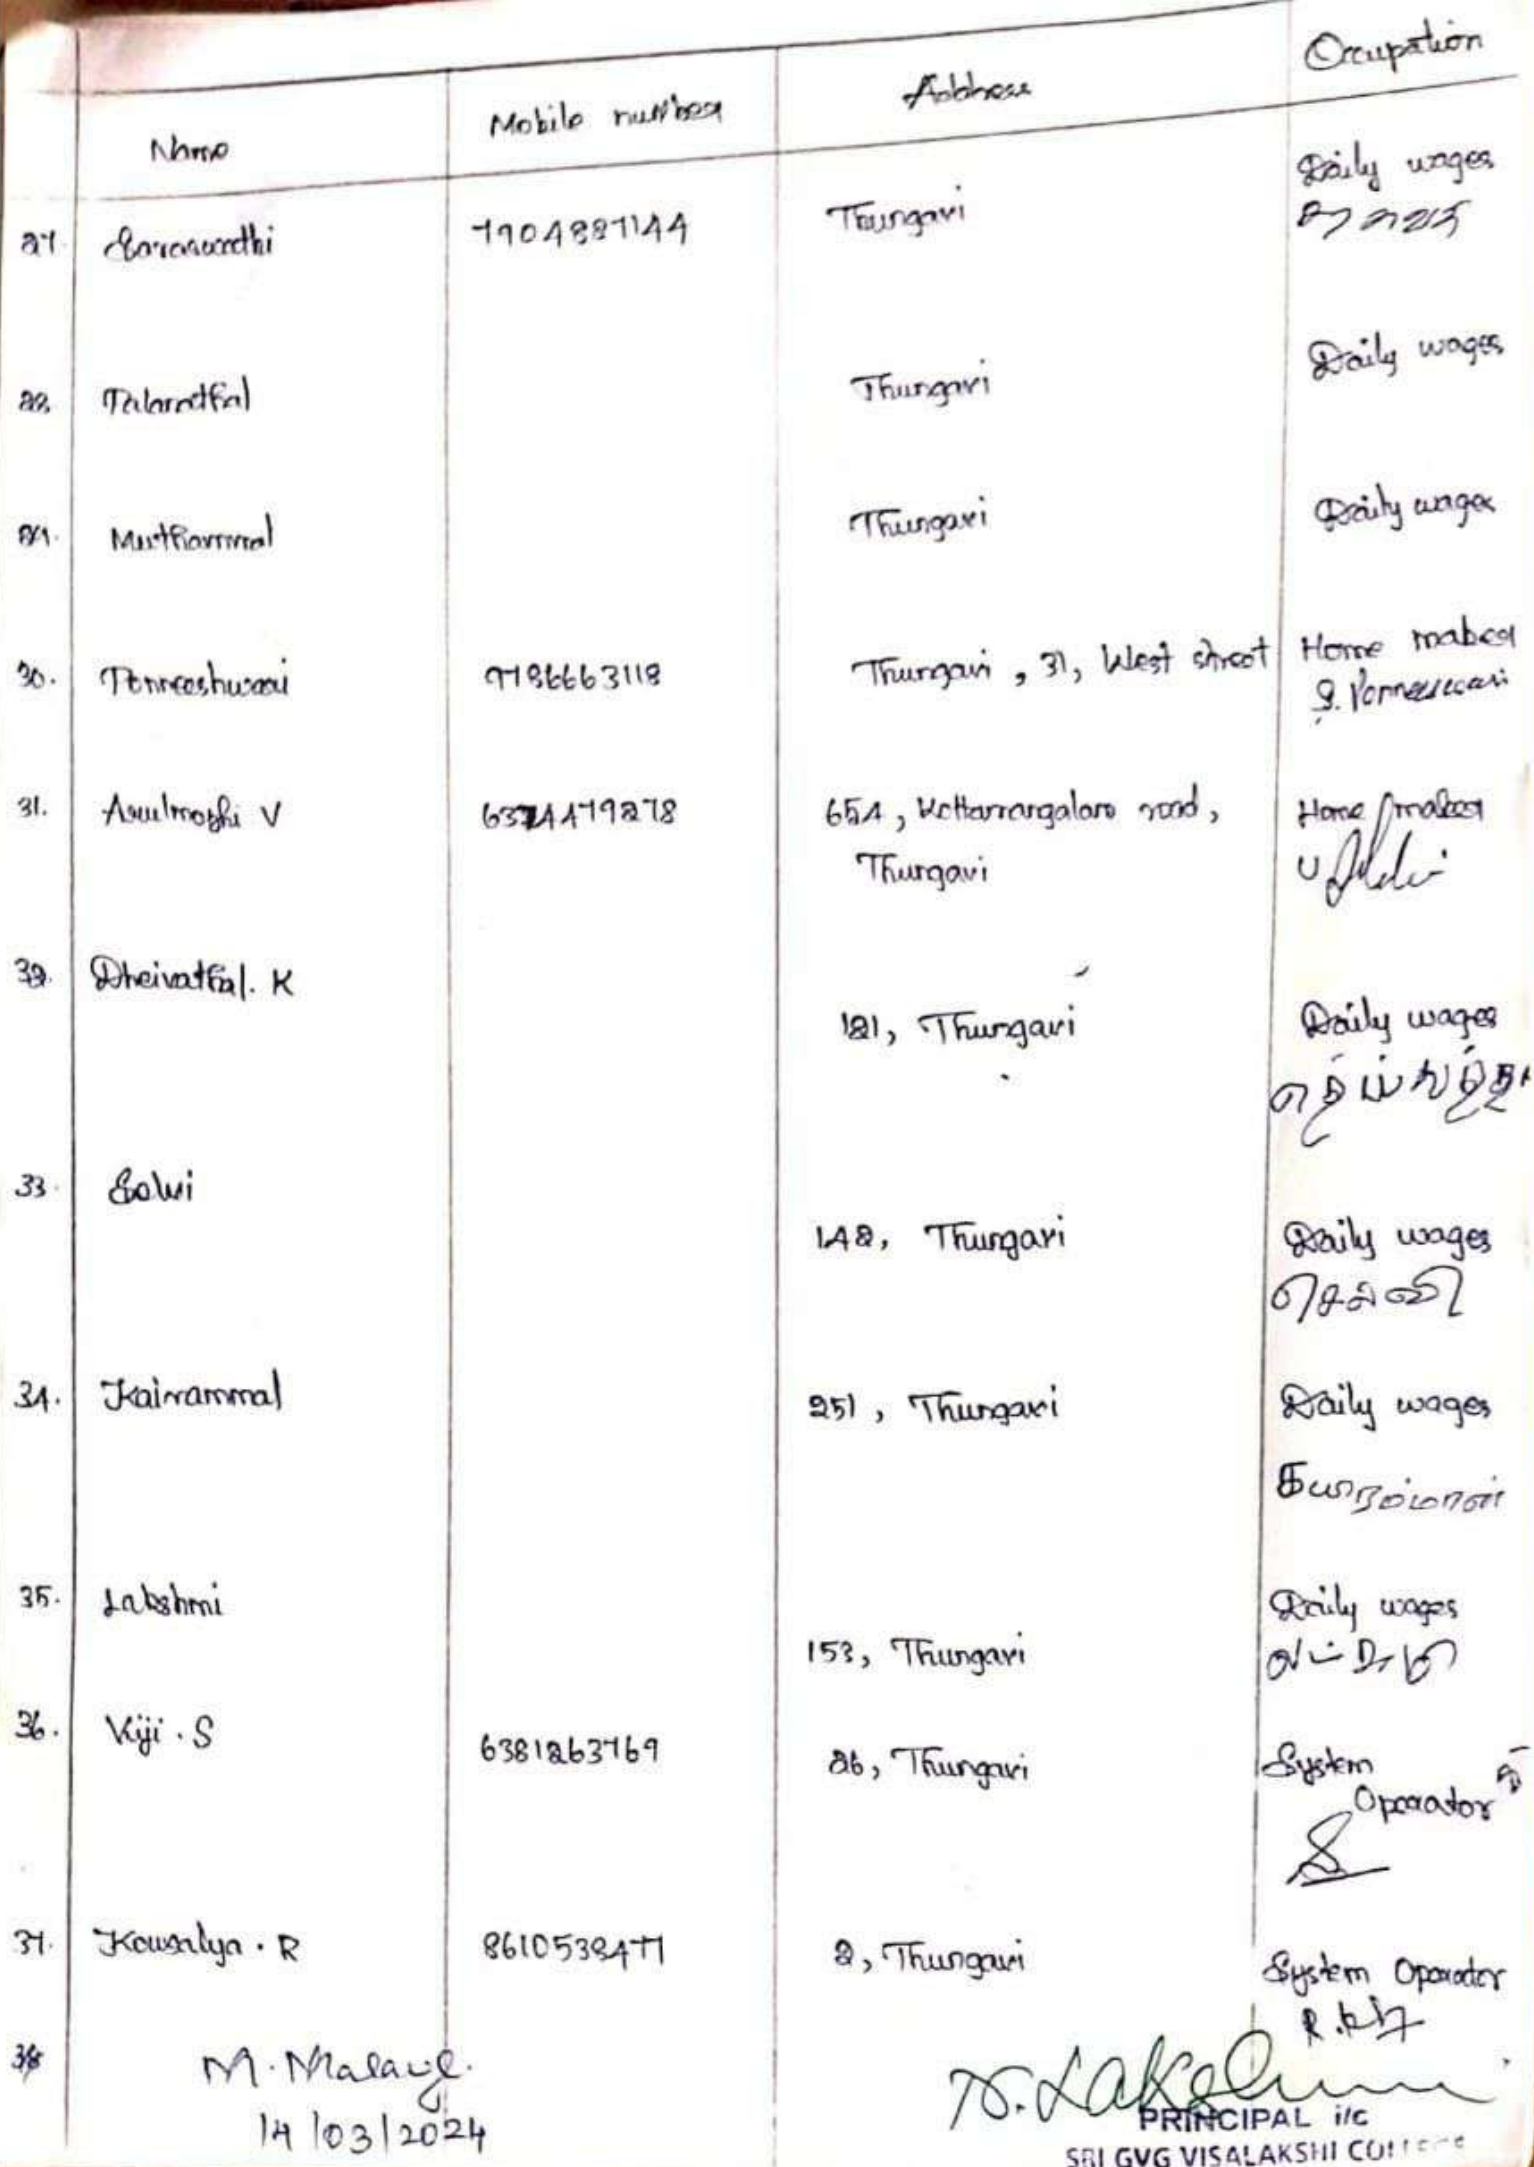 Name Mobile number Address Occupation
27. Saraswathi 7904887144 Thungavi Daily wages
28. Palanathal Thungavi Daily wages
29. Muthammal Thungavi Daily wages
30. Ponneeshwari 9786663118 Thungavi, 31, West street Home maker
S. Ponneeswari
31. Arulmozhi V 6374479278 654, Kottamangalam road, Home maker
Thungavi
32. Dheivathal. K
121, Thungavi Daily wages
33. Selvi
142, Thungavi Daily wages
செல்வி
34. Kairammal 251, Thungavi Daily wages
35. Lakshmi Daily wages
153, Thungavi
36. Viji. S 6381263769 26, Thungavi System
Operator
37. Kowsalya. R 8610538477 2, Thungavi System Operator
38
14/03/2024
N. Lakshmi
PRINCIPAL i/c
SRI GVG VISALAKSHI COLLEGE